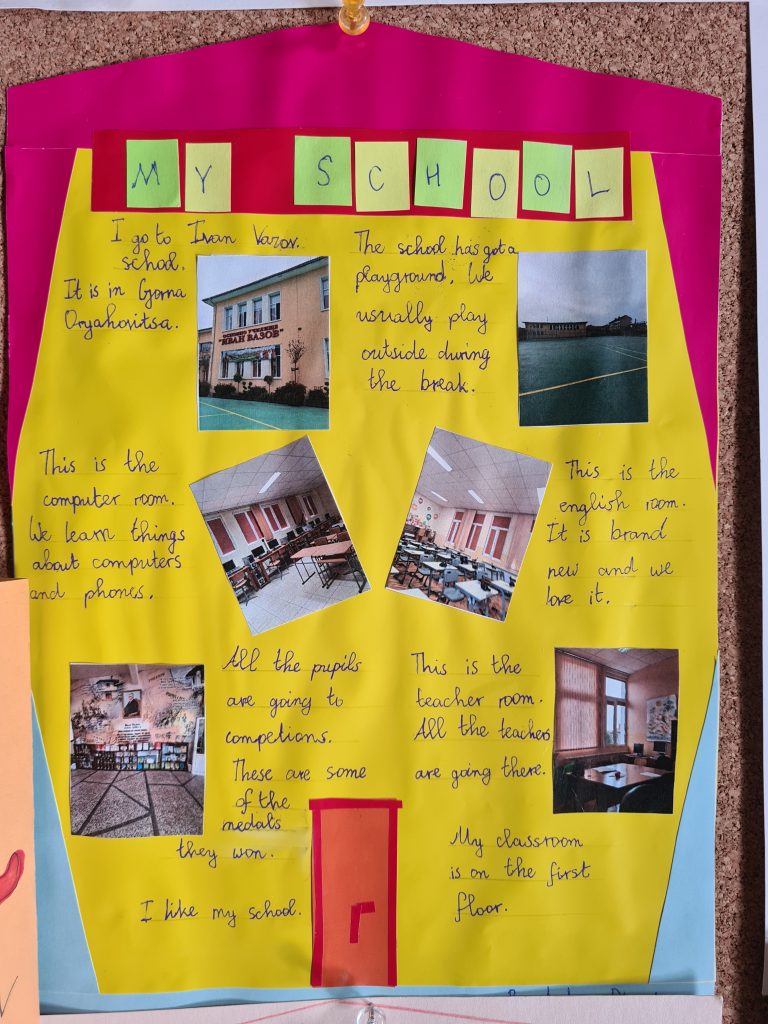 MY SCHOOL
I go to Ivan Vazov
school.
It is in Gorna
Oryahovitsa.
ОСНОВНО УЧИЛИЩЕ
"ИВАН ВАЗОВ"
The school has got a
playground. We
usually play
outside during
the break.
This is the
computer room.
We learn things
about computers
and phones.
This is the
english room.
It is brand
new and we
love it.
All the pupils
are going to
competions.
These are some
of the
medals
they won.
I like my school.
This is the
teacher room.
All the teachers
are going there.
My classroom
is on the first
floor.